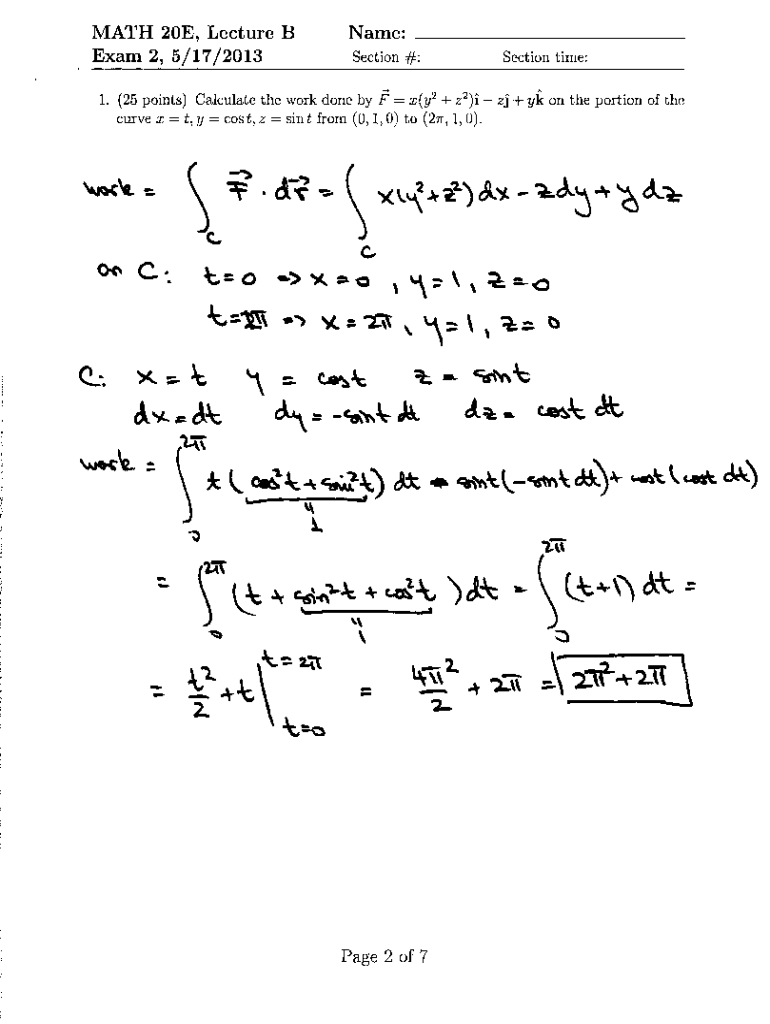 MATH 20E, Lecture B Name:
Exam 2, 5/17/2013 Section #: Section time:
1. (25 points) Calculate the work done by F⃗ = x(y² + z²)î − zĵ + yk̂ on the portion of the
curve x = t, y = cos t, z = sin t from (0, 1, 0) to (2π, 1, 0).
work = ∫_C F⃗ · dr⃗ = ∫_C x(y²+z²) dx − z dy + y dz
on C: t=0 => x=0, y=1, z=0
t=2π => x=2π, y=1, z=0
C: x=t y = cost z = sint
dx=dt dy = -sint dt dz = cost dt
work = ∫_0^{2π} t(cos²t + sin²t) dt - sint(-sint dt) + cost(cost dt)
" 1
= ∫_0^{2π} (t + sin²t + cos²t) dt = ∫_0^{2π} (t+1) dt =
" 1
= t²/2 + t |_{t=0}^{t=2π} = 4π²/2 + 2π = 2π²+2π
Page 2 of 7